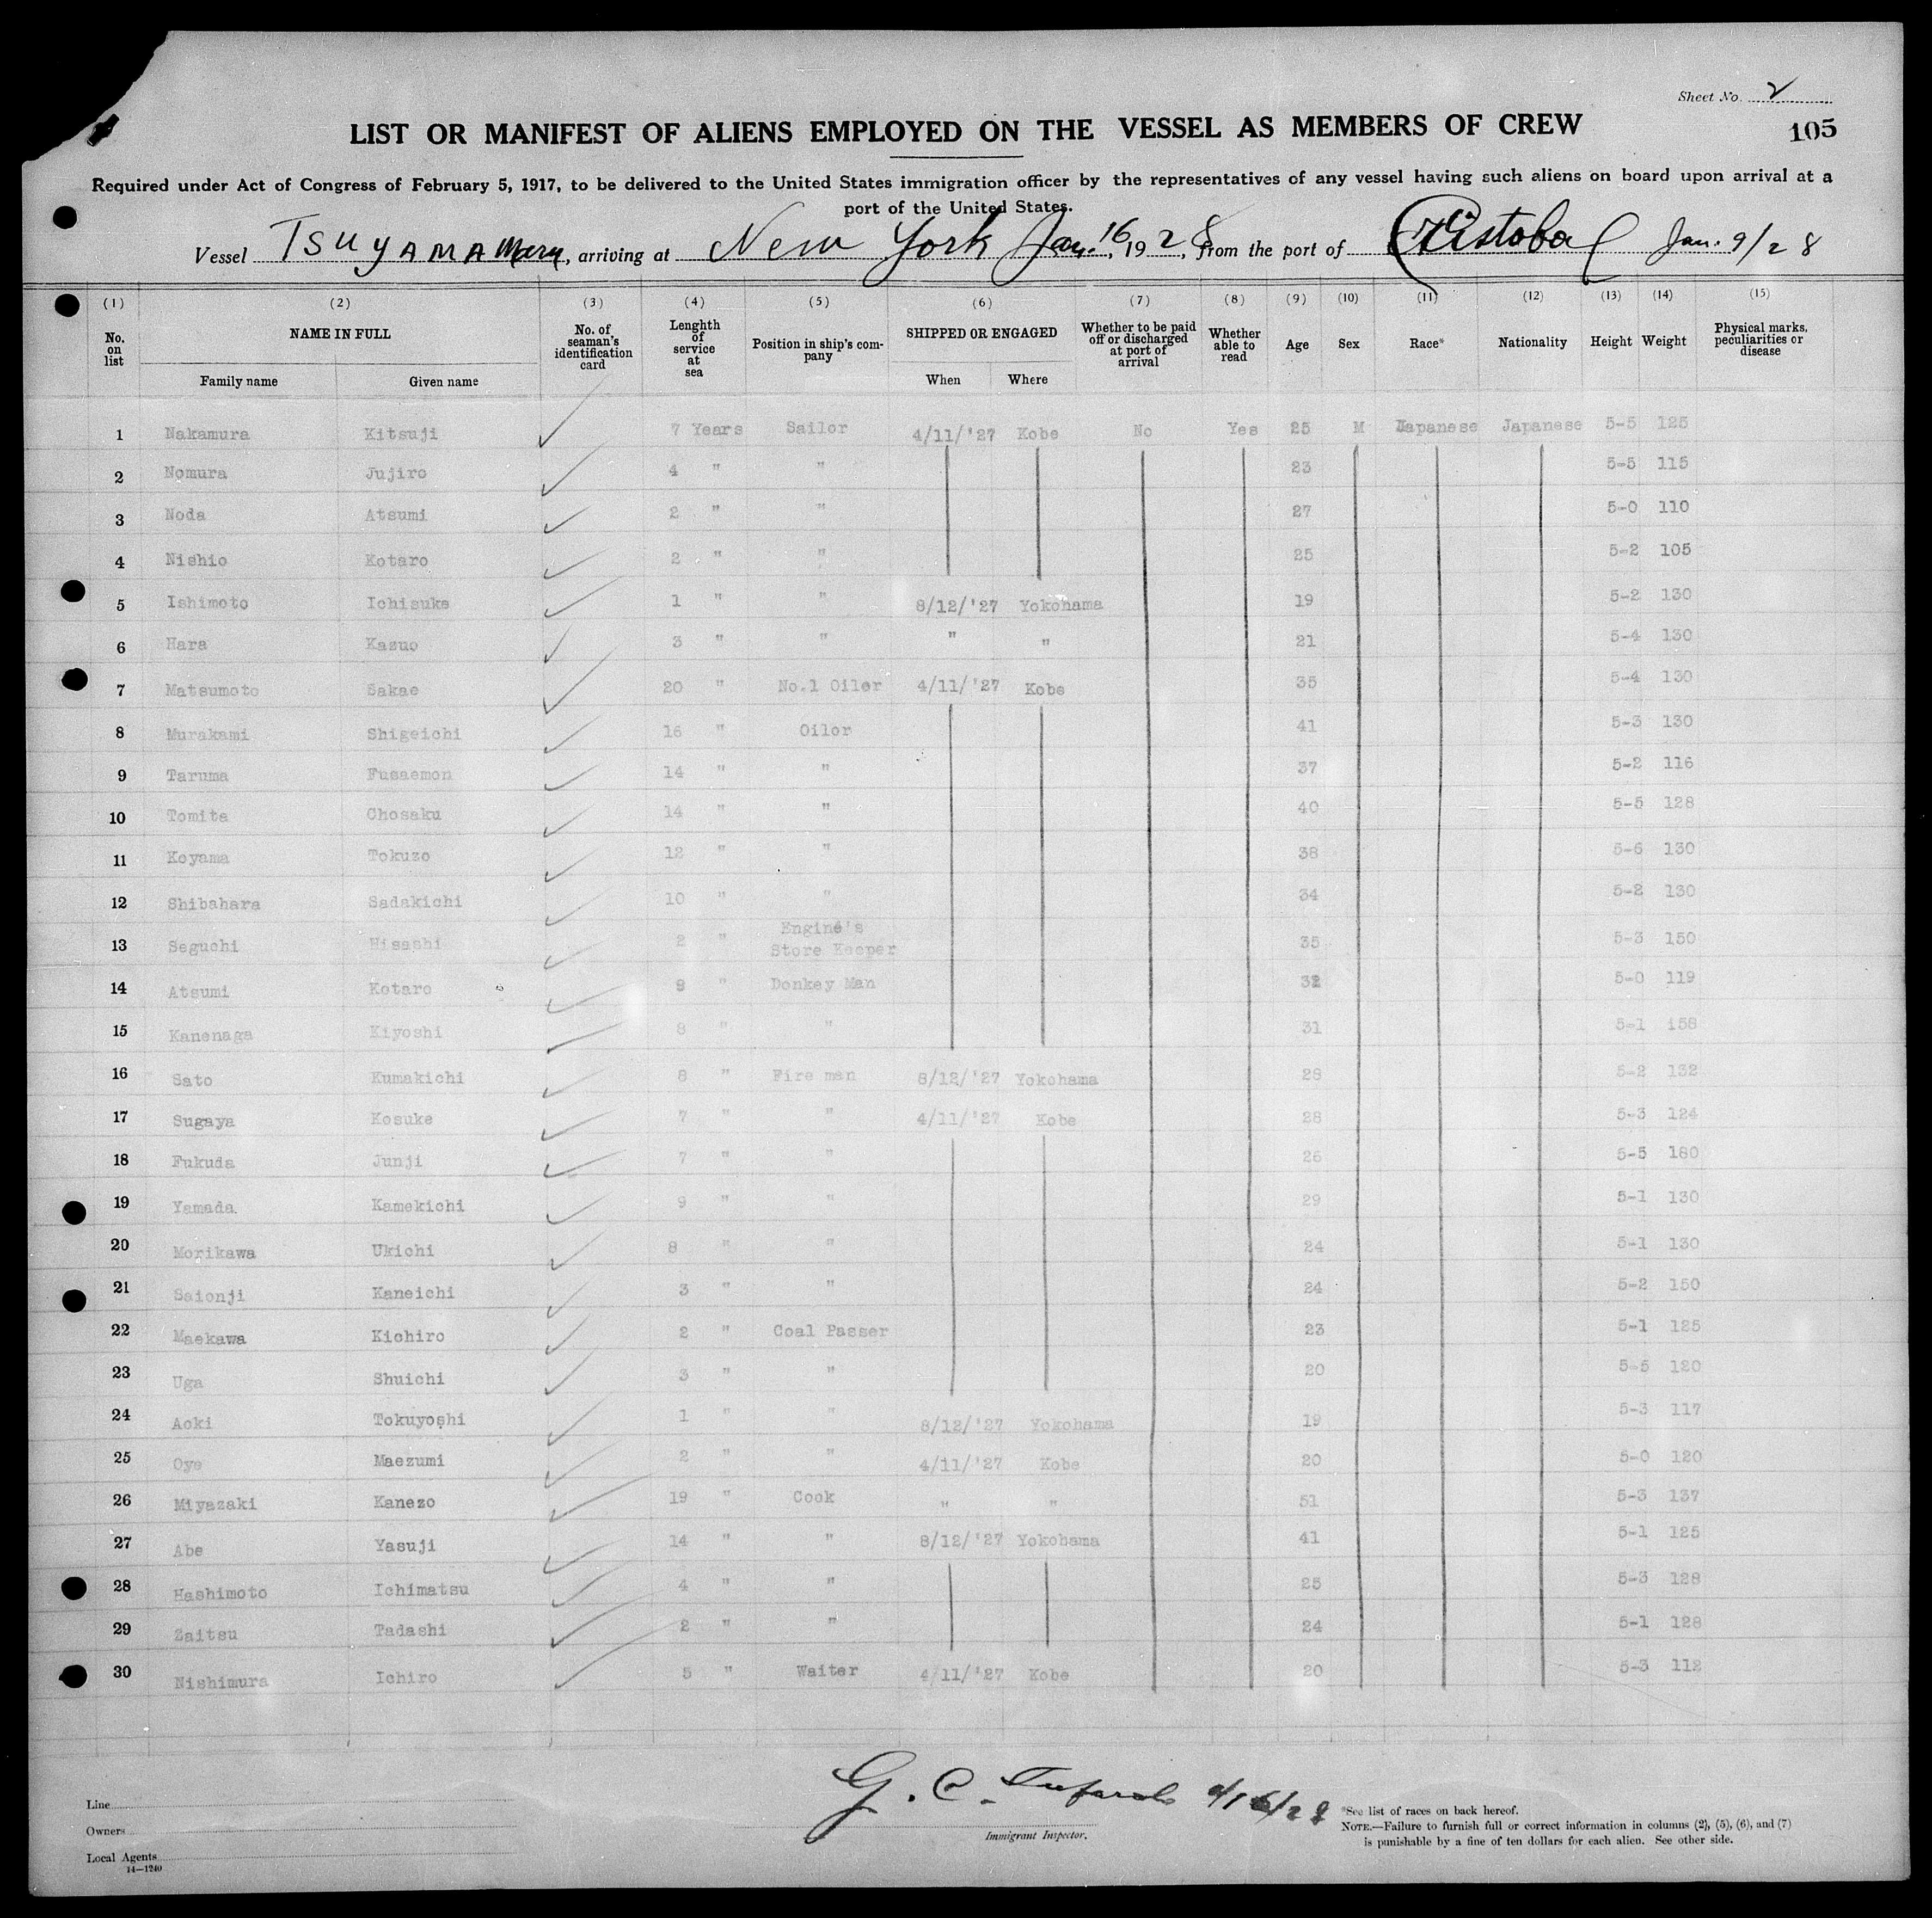 Sheet No. 2
LIST OR MANIFEST OF ALIENS EMPLOYED ON THE VESSEL AS MEMBERS OF CREW
105
Required under Act of Congress of February 5, 1917, to be delivered to the United States immigration officer by the representatives of any vessel having such aliens on board upon arrival at a
port of the United States.
Vessel TSUYAMA Maru, arriving at New York Jan. 16, 1928, from the port of Cristobal Jan. 9/28
(1) (2) (3) (4) (5) (6) (7) (8) (9) (10) (11) (12) (13) (14) (15)
No. on list NAME IN FULL Family name Given name No. of seaman's identification card Lenghth of service at sea Position in ship's company SHIPPED OR ENGAGED When Where Whether to be paid off or discharged at port of arrival Whether able to read Age Sex Race* Nationality Height Weight Physical marks, peculiarities or disease
1 Nakamura Kitsuji 7 Years Sailor 4/11/'27 Kobe No Yes 25 M Japanese Japanese 5-5 125
2 Nomura Jujiro 4 " " 23 5-5 115
3 Noda Atsumi 2 " " 27 5-0 110
4 Nishio Kotaro 2 " " 25 5-2 105
5 Ishimoto Ichisuke 1 " " 8/12/'27 Yokohama 19 5-2 130
6 Hara Kazuo 3 " " " " 21 5-4 130
7 Matsumoto Sakae 20 " No.1 Oiler 4/11/'27 Kobe 35 5-4 130
8 Murakami Shigeichi 16 " Oilor 41 5-3 130
9 Taruma Fusaemon 14 " " 37 5-2 116
10 Tomita Chosaku 14 " " 40 5-5 128
11 Koyama Tokuzo 12 " " 38 5-6 130
12 Shibahara Sadakichi 10 " " 34 5-2 130
13 Seguchi Hisashi 2 " Engine's Store Keeper 35 5-3 150
14 Atsumi Kotaro 9 " Donkey Man 5-0 119
15 Kanenaga Kiyoshi 8 " " 31 5-1 158
16 Sato Kumakichi 8 " Fire man 8/12/'27 Yokohama 28 5-2 132
17 Sugaya Kosuke 7 " " 4/11/'27 Kobe 28 5-3 124
18 Fukuda Junji 7 " " 26 5-5 180
19 Yamada Kamekichi 9 " " 29 5-1 130
20 Morikawa Ukichi 8 " " 24 5-1 130
21 Saionji Kaneichi 3 " " 24 5-2 150
22 Maekawa Kichiro 2 " Coal Passer 23 5-1 125
23 Uga Shuichi 3 " " 20 5-5 120
24 Aoki Tokuyoshi 1 " " 8/12/'27 Yokohama 19 5-3 117
25 Oye Maezumi 2 " " 4/11/'27 Kobe 20 5-0 120
26 Miyazaki Kanezo 19 " Cook " " 51 5-3 137
27 Abe Yasuji 14 " " 8/12/'27 Yokohama 41 5-1 125
28 Hashimoto Ichimatsu 4 " " 25 5-3 128
29 Zaitsu Tadashi 2 " " 24 5-1 128
30 Nishimura Ichiro 5 " Waiter 4/11/'27 Kobe 20 5-3 112
G. C.
Immigrant Inspector.
Line
Owners
Local Agents
14—1240
*See list of races on back hereof.
NOTE.—Failure to furnish full or correct information in columns (2), (5), (6), and (7)
is punishable by a fine of ten dollars for each alien. See other side.